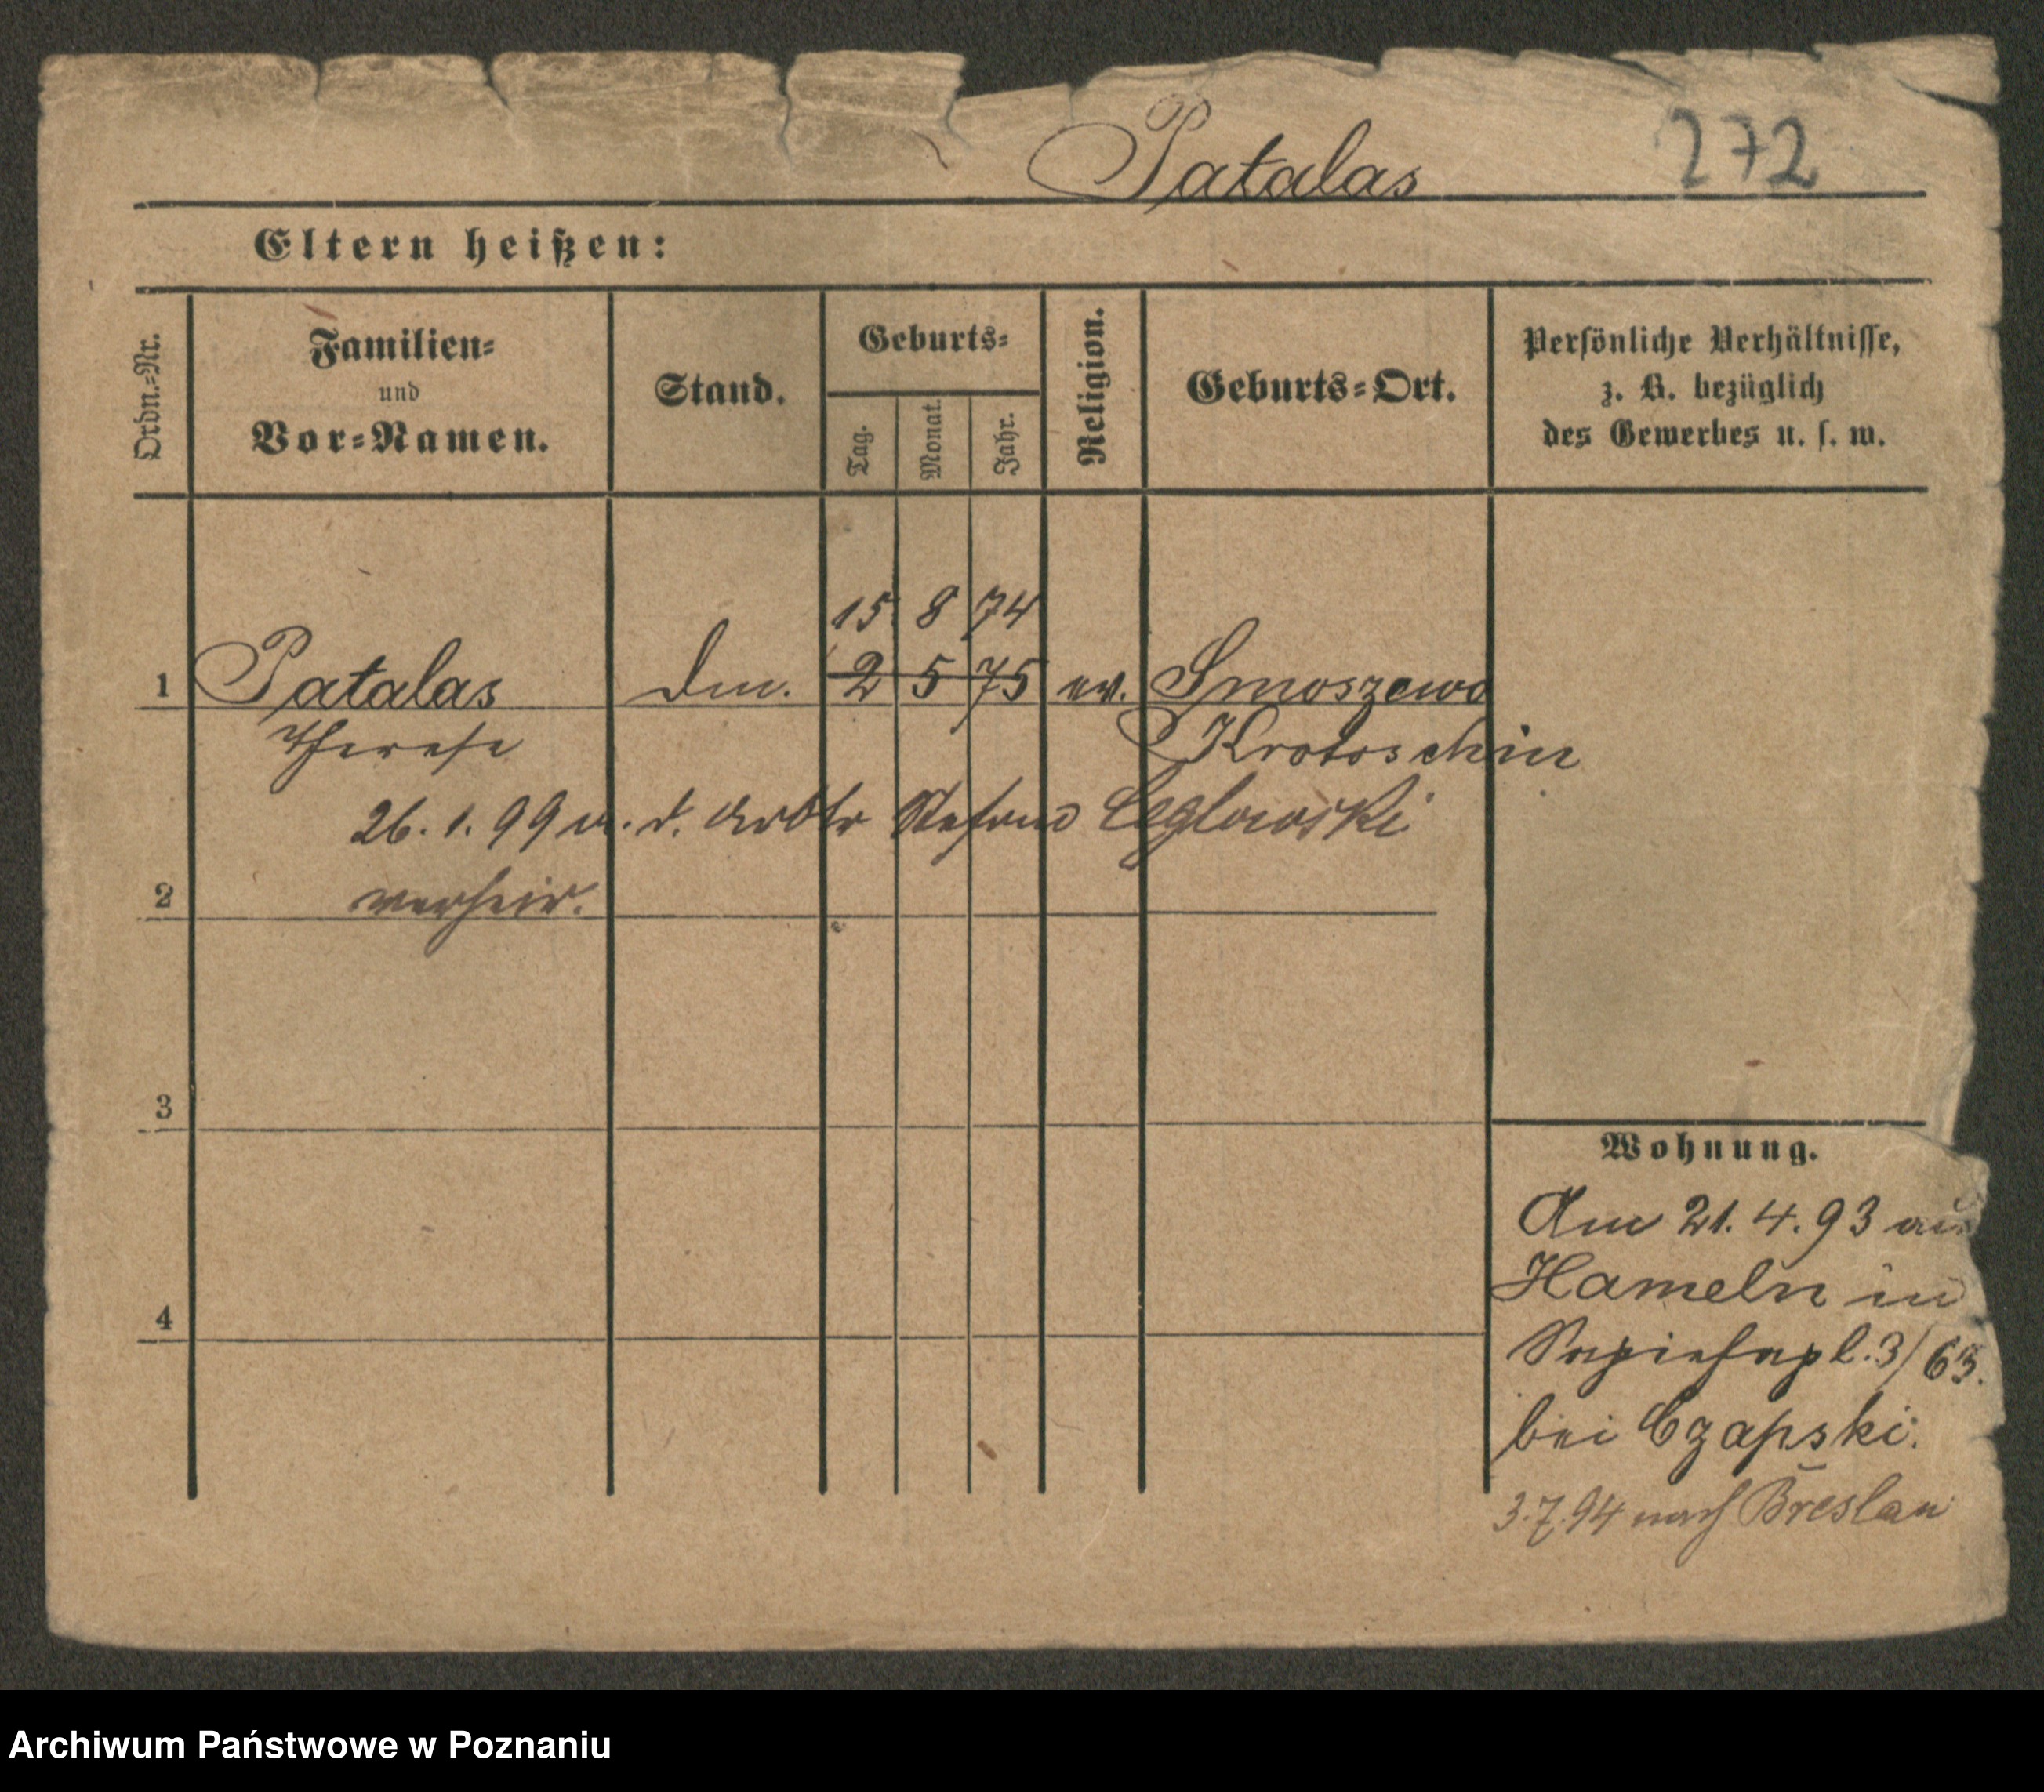 Patalas 272
Eltern heißen:
Ordn.-Nr.
Familien-
und
Vor-Namen.
Stand.
Geburts-
Tag.
Monat.
Jahr.
Religion.
Geburts-Ort.
Persönliche Verhältnisse,
z. B. bezüglich
des Gewerbes u. s. w.
15 8 74
1 Patalas 2 5 75 ev. Smoszewo
Therese Krotoschin
26. 1. 99 m. d. Arbtr Stefan Ceglowski
2 verheir.
3
4
Wohnung.
Am 21. 4. 93 aus
Hameln in
Sapiehapl. 3/63.
bei Czapski.
3. 7. 94 nach Breslau
Archiwum Państwowe w Poznaniu